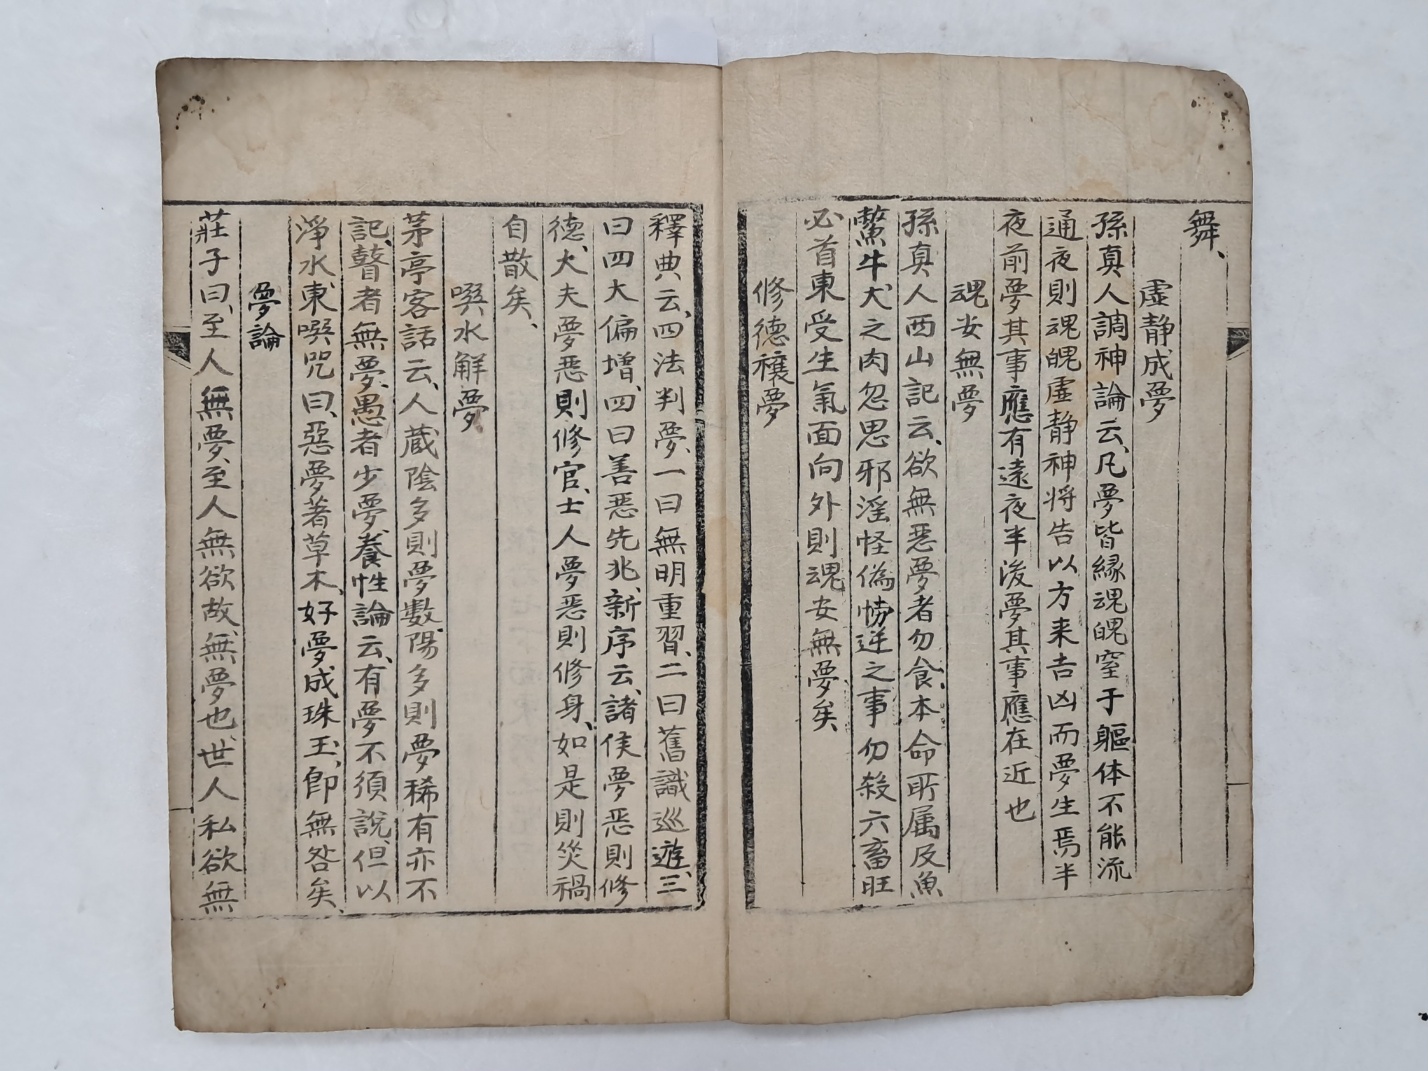 舞、
虛静成夢
孫真人調神論云、凡夢皆縁魂魄窒于軀体不能流
通夜則魂魄虛静神将告以方来吉凶而夢生焉半
夜前夢其事應有遠夜半後夢其事應在近也
魂安無夢
孫真人西山記云、欲無惡夢者勿食、本命所属及魚
鱉牛犬之肉忽思邪淫怪偽悖逆之事勿殺六畜旺
必首東受生氣面向外則魂安無夢矣
修德禳夢
釋典云、四法判夢、一曰無明重習、二曰舊識巡遊、三
曰四大偏增、四曰善惡先兆、新序云、諸侯夢惡則修
德、大夫夢惡則修官、士人夢惡則修身、如是則災禍
自散矣、
噀水解夢
茅亭客話云、人蔵陰多則夢數、陽多則夢稀有亦不
記、瞽者無夢、愚者少夢、養性論云、有夢不須說、但以
淨水、東噀咒曰、惡夢著草木、好夢成珠玉、即無咎矣、
夢論
莊子曰、至人無夢、至人無欲故、無夢也、世人私欲無